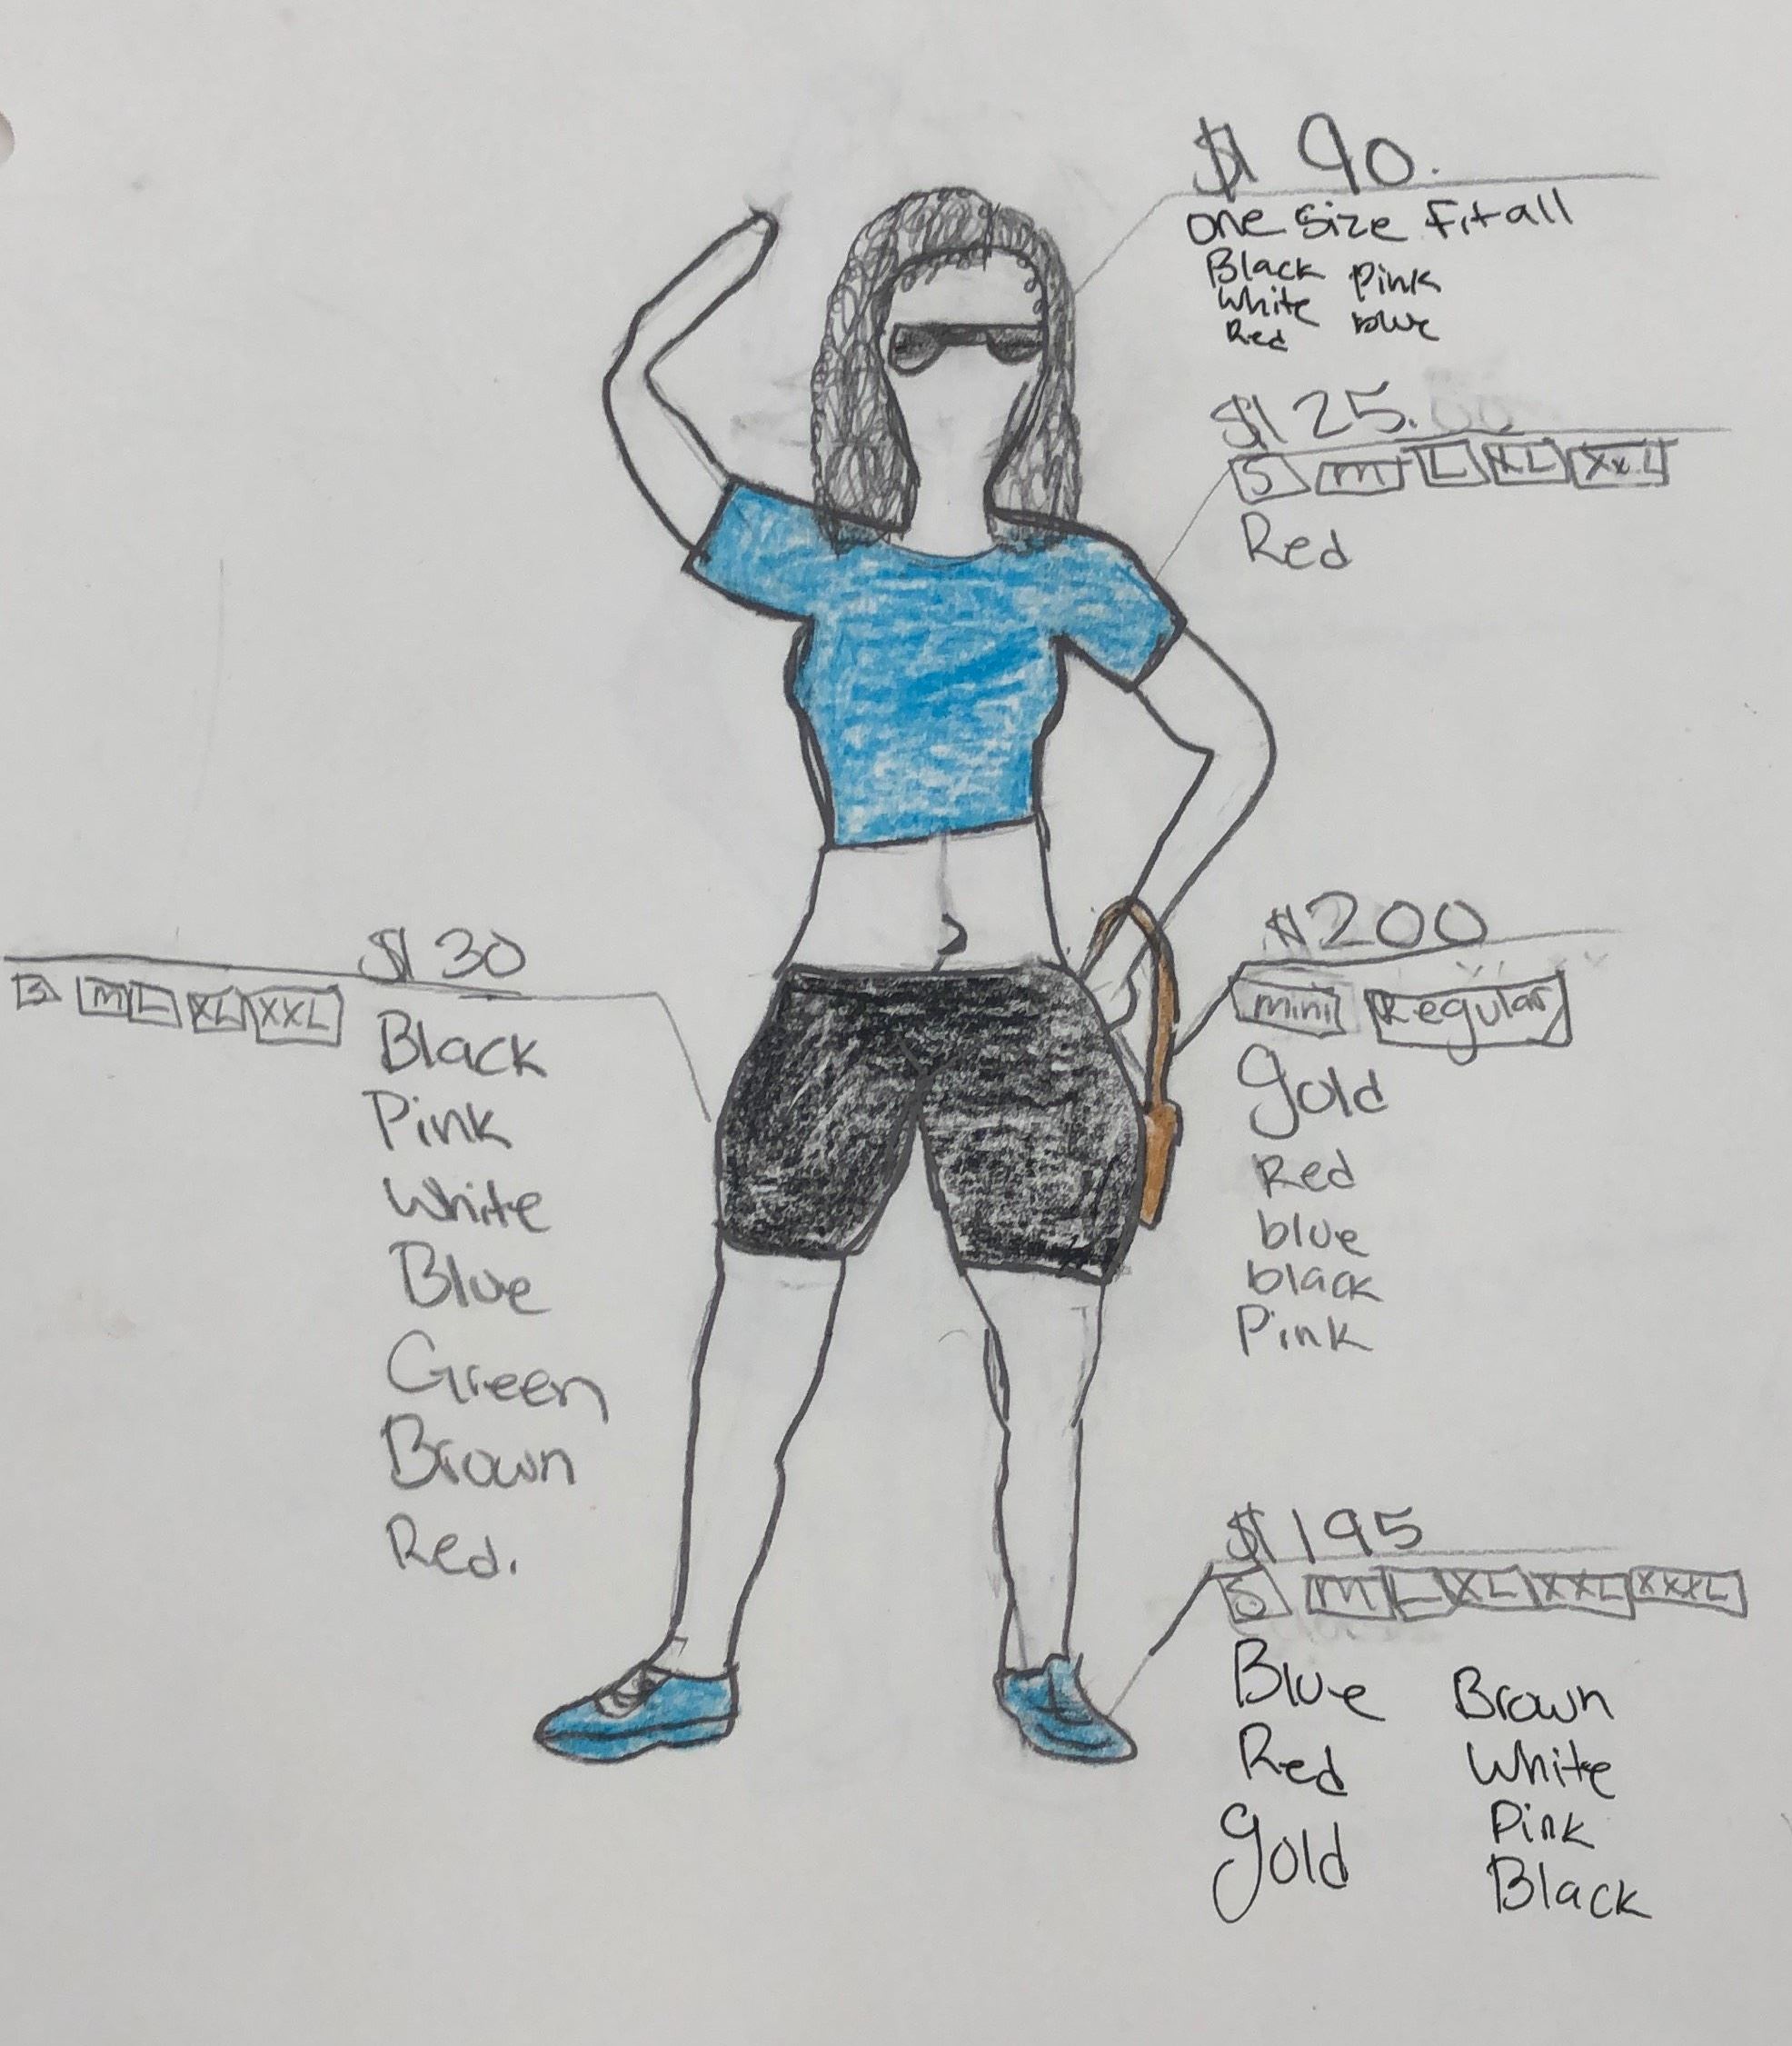 $ 90.
One Size Fit all
Black Pink
White blue
Red
$ 25.00
S M L XL XXL
Red
$ 30
S M L XL XXL
Black
Pink
White
Blue
Green
Brown
Red.
$200
mini Regular
gold
Red
blue
black
Pink
$195
S M L XL XXL XXXL
Blue Brown
Red White
gold Pink
Black